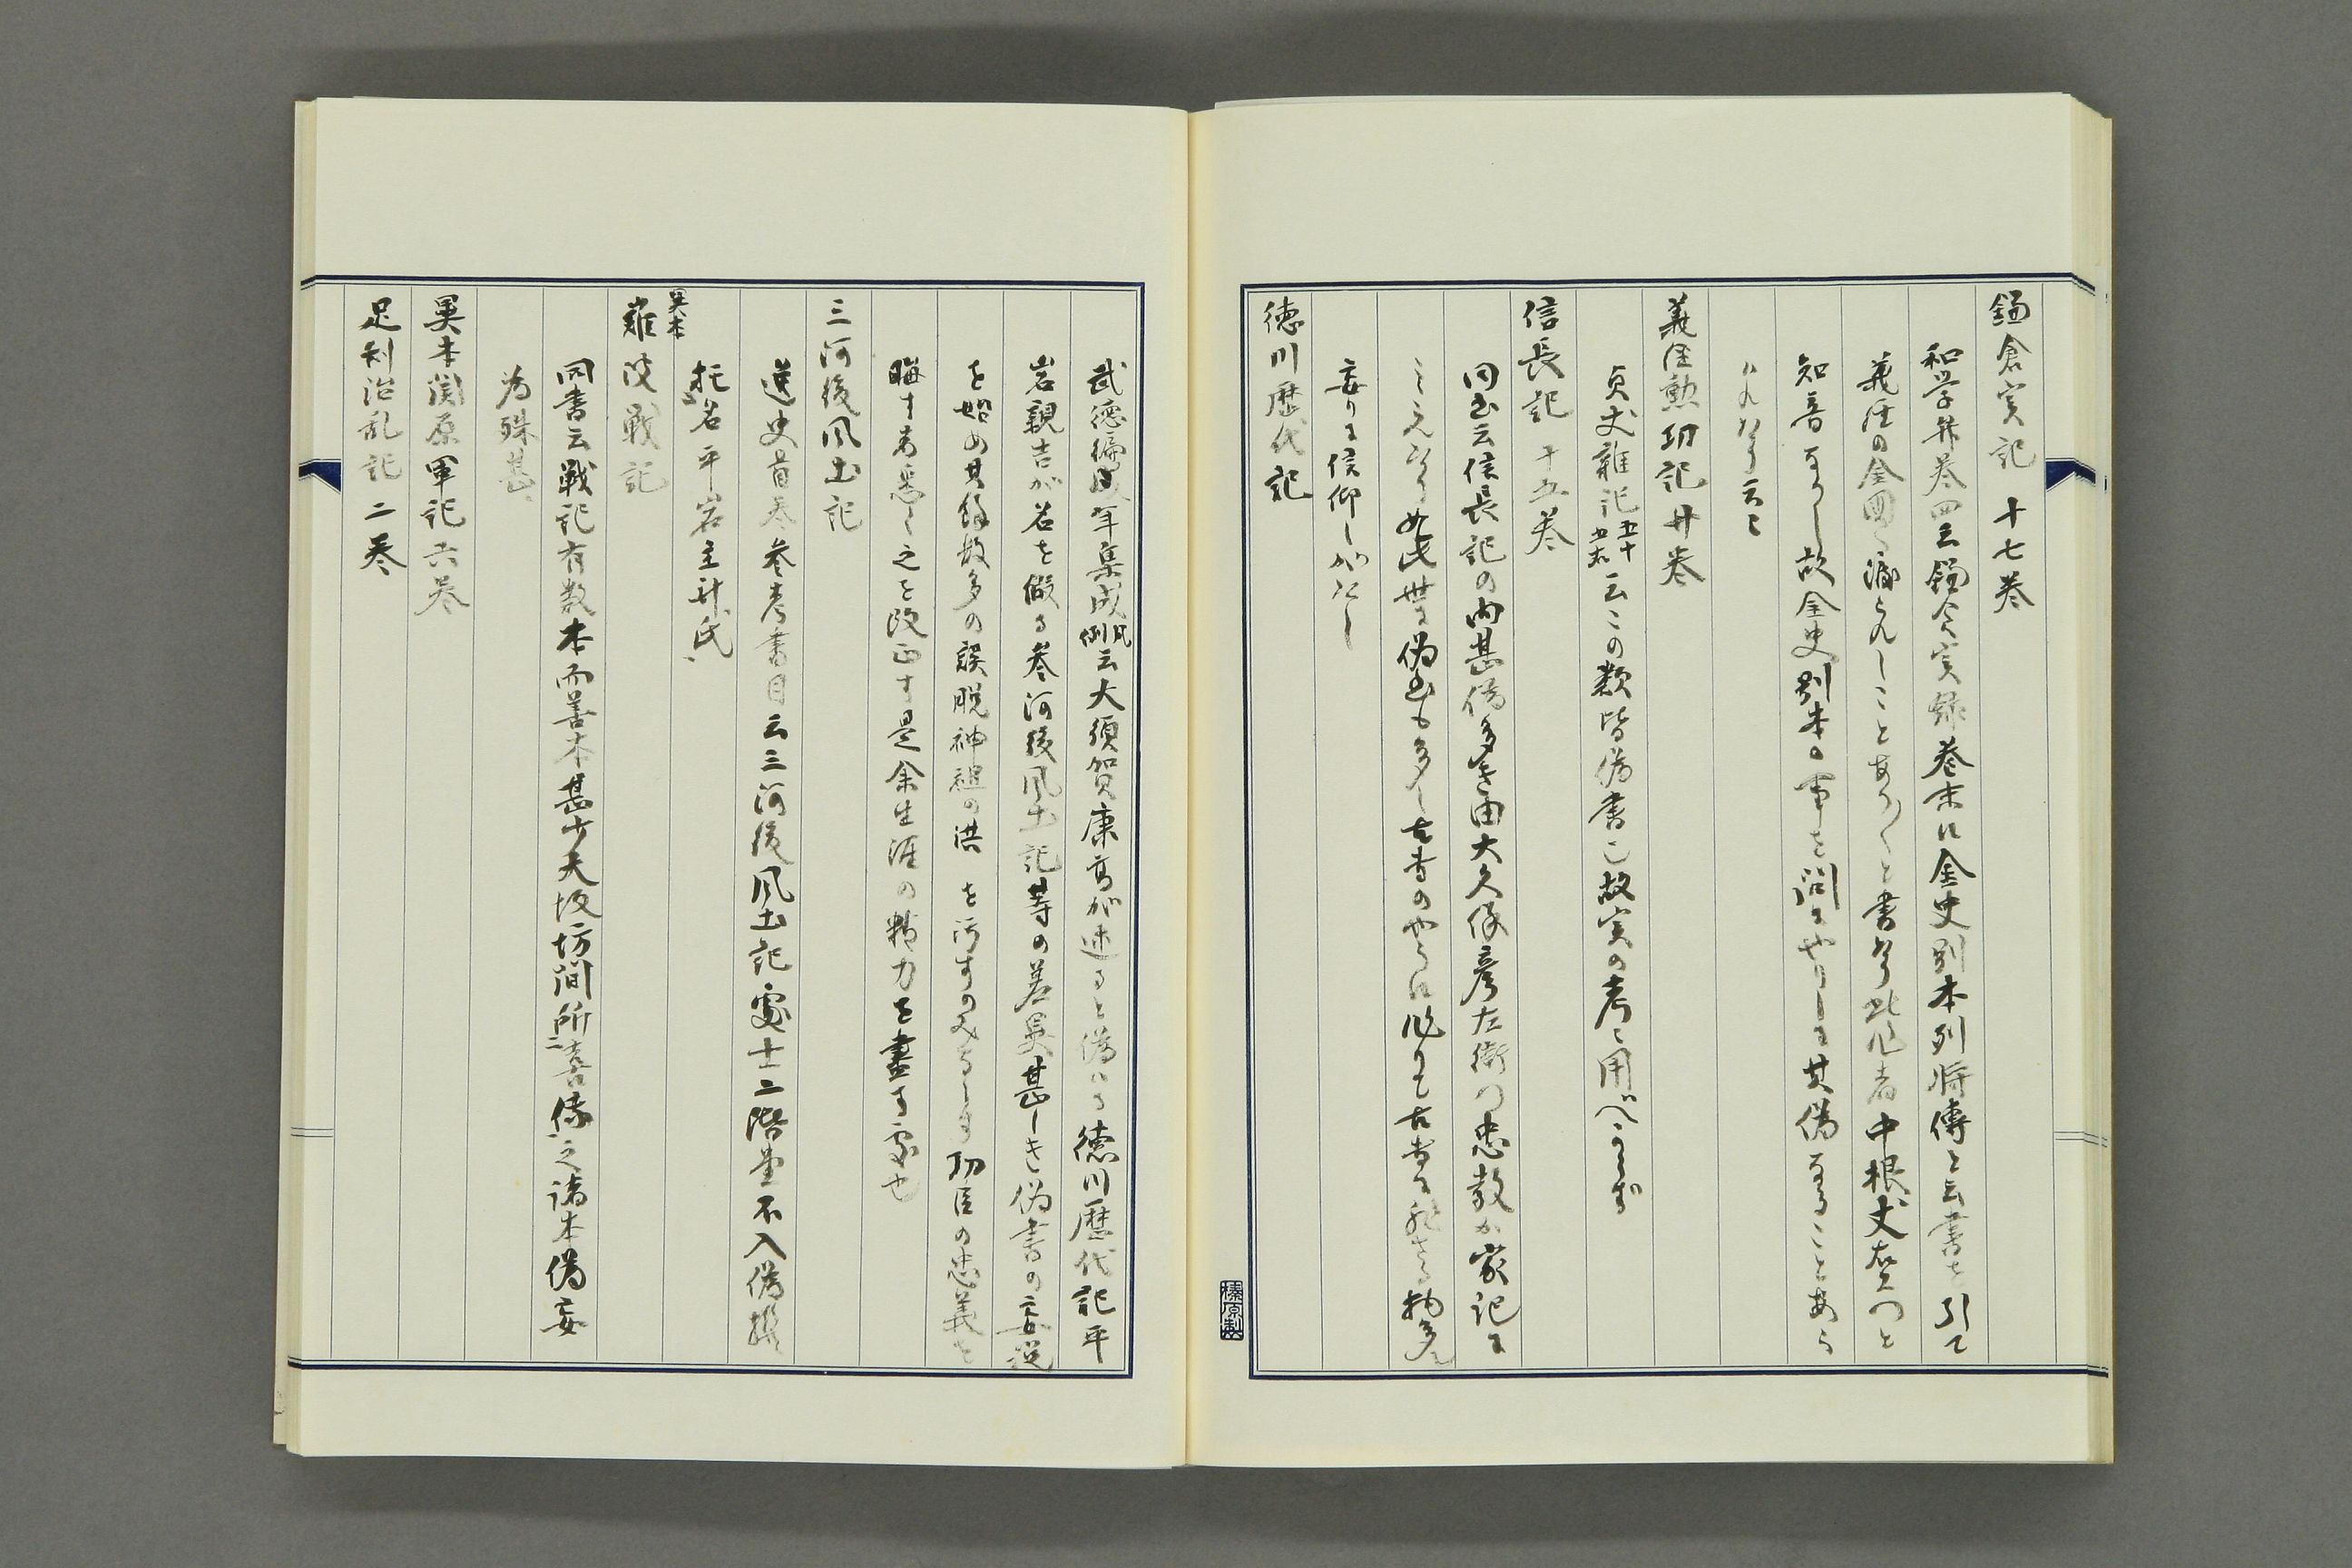 鎌倉実記 十七巻
和学弁巻四云鎌倉実録巻末に金史別本列将傳と云書を引て
義経の金国へ渡られしことあり〳〵と書けり此作者中根丈右衛門と
知音なりし故金史別本の事を問にやりしに其偽なることあら
はれけり云々
義経勲功記 廿巻
貞丈雑記云この類皆偽書也故実の考に用べからず
信長記 十五巻
同書云信長記の内甚偽多き由大久保彦左衛門忠教が家記に
みえたり如此世に偽書も多し古書のやうに作りて古書に非ざる物多し
妄りに信仰しがたし
徳川歴代記
武徳編年集成凡例云大須賀康高が述ると偽はる徳川歴代記平
岩親吉が名を假る参河後風土記等の差異甚しき偽書の妄説
を始め其餘数多の誤脱神祖の洪 を汚すのみならず功臣の忠義を
晦す者悉く之を改正す是余生涯の精力を盡す處也
三河後風土記
逸史首巻参考書目云三河後風土記處士二階堂不入偽撰
托名平岩主計氏
異本
難波戦記
同書云戦記有数本而善本甚少大坂坊間所喜傳之諸本偽妄
為殊甚
異本関原軍記 六巻
足利治乱記 二巻
榛原製